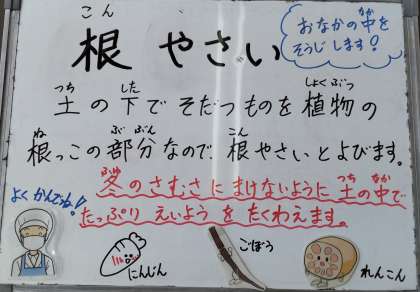 こん
根 やさい
おなかの中を
なか
そうじします!
つち した しょくぶつ
土の下でそだつものを植物の
ね ぶ ぶん こん
根っこの部分なので、根やさいとよびます。
ふゆ つち なか
冬のさむさにまけないように土の中で
たっぷりえいようをたくわえます。
よくかんでね!
にんじん
ごぼう
れんこん